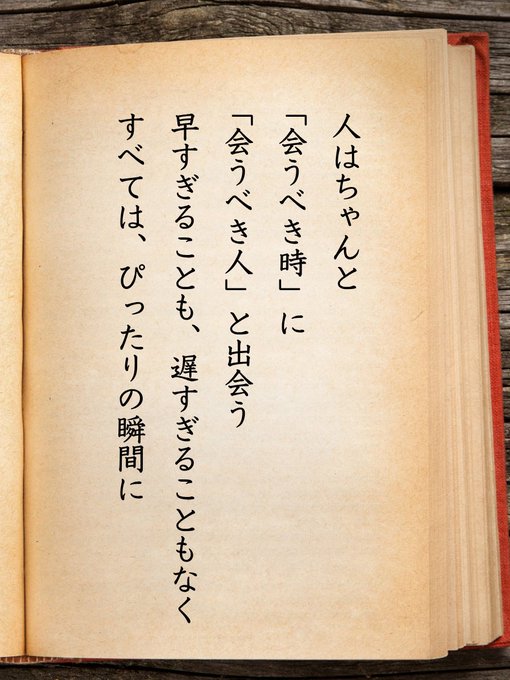 人はちゃんと
「会うべき時」に
「会うべき人」と出会う
早すぎることも、遅すぎることもなく
すべては、ぴったりの瞬間に